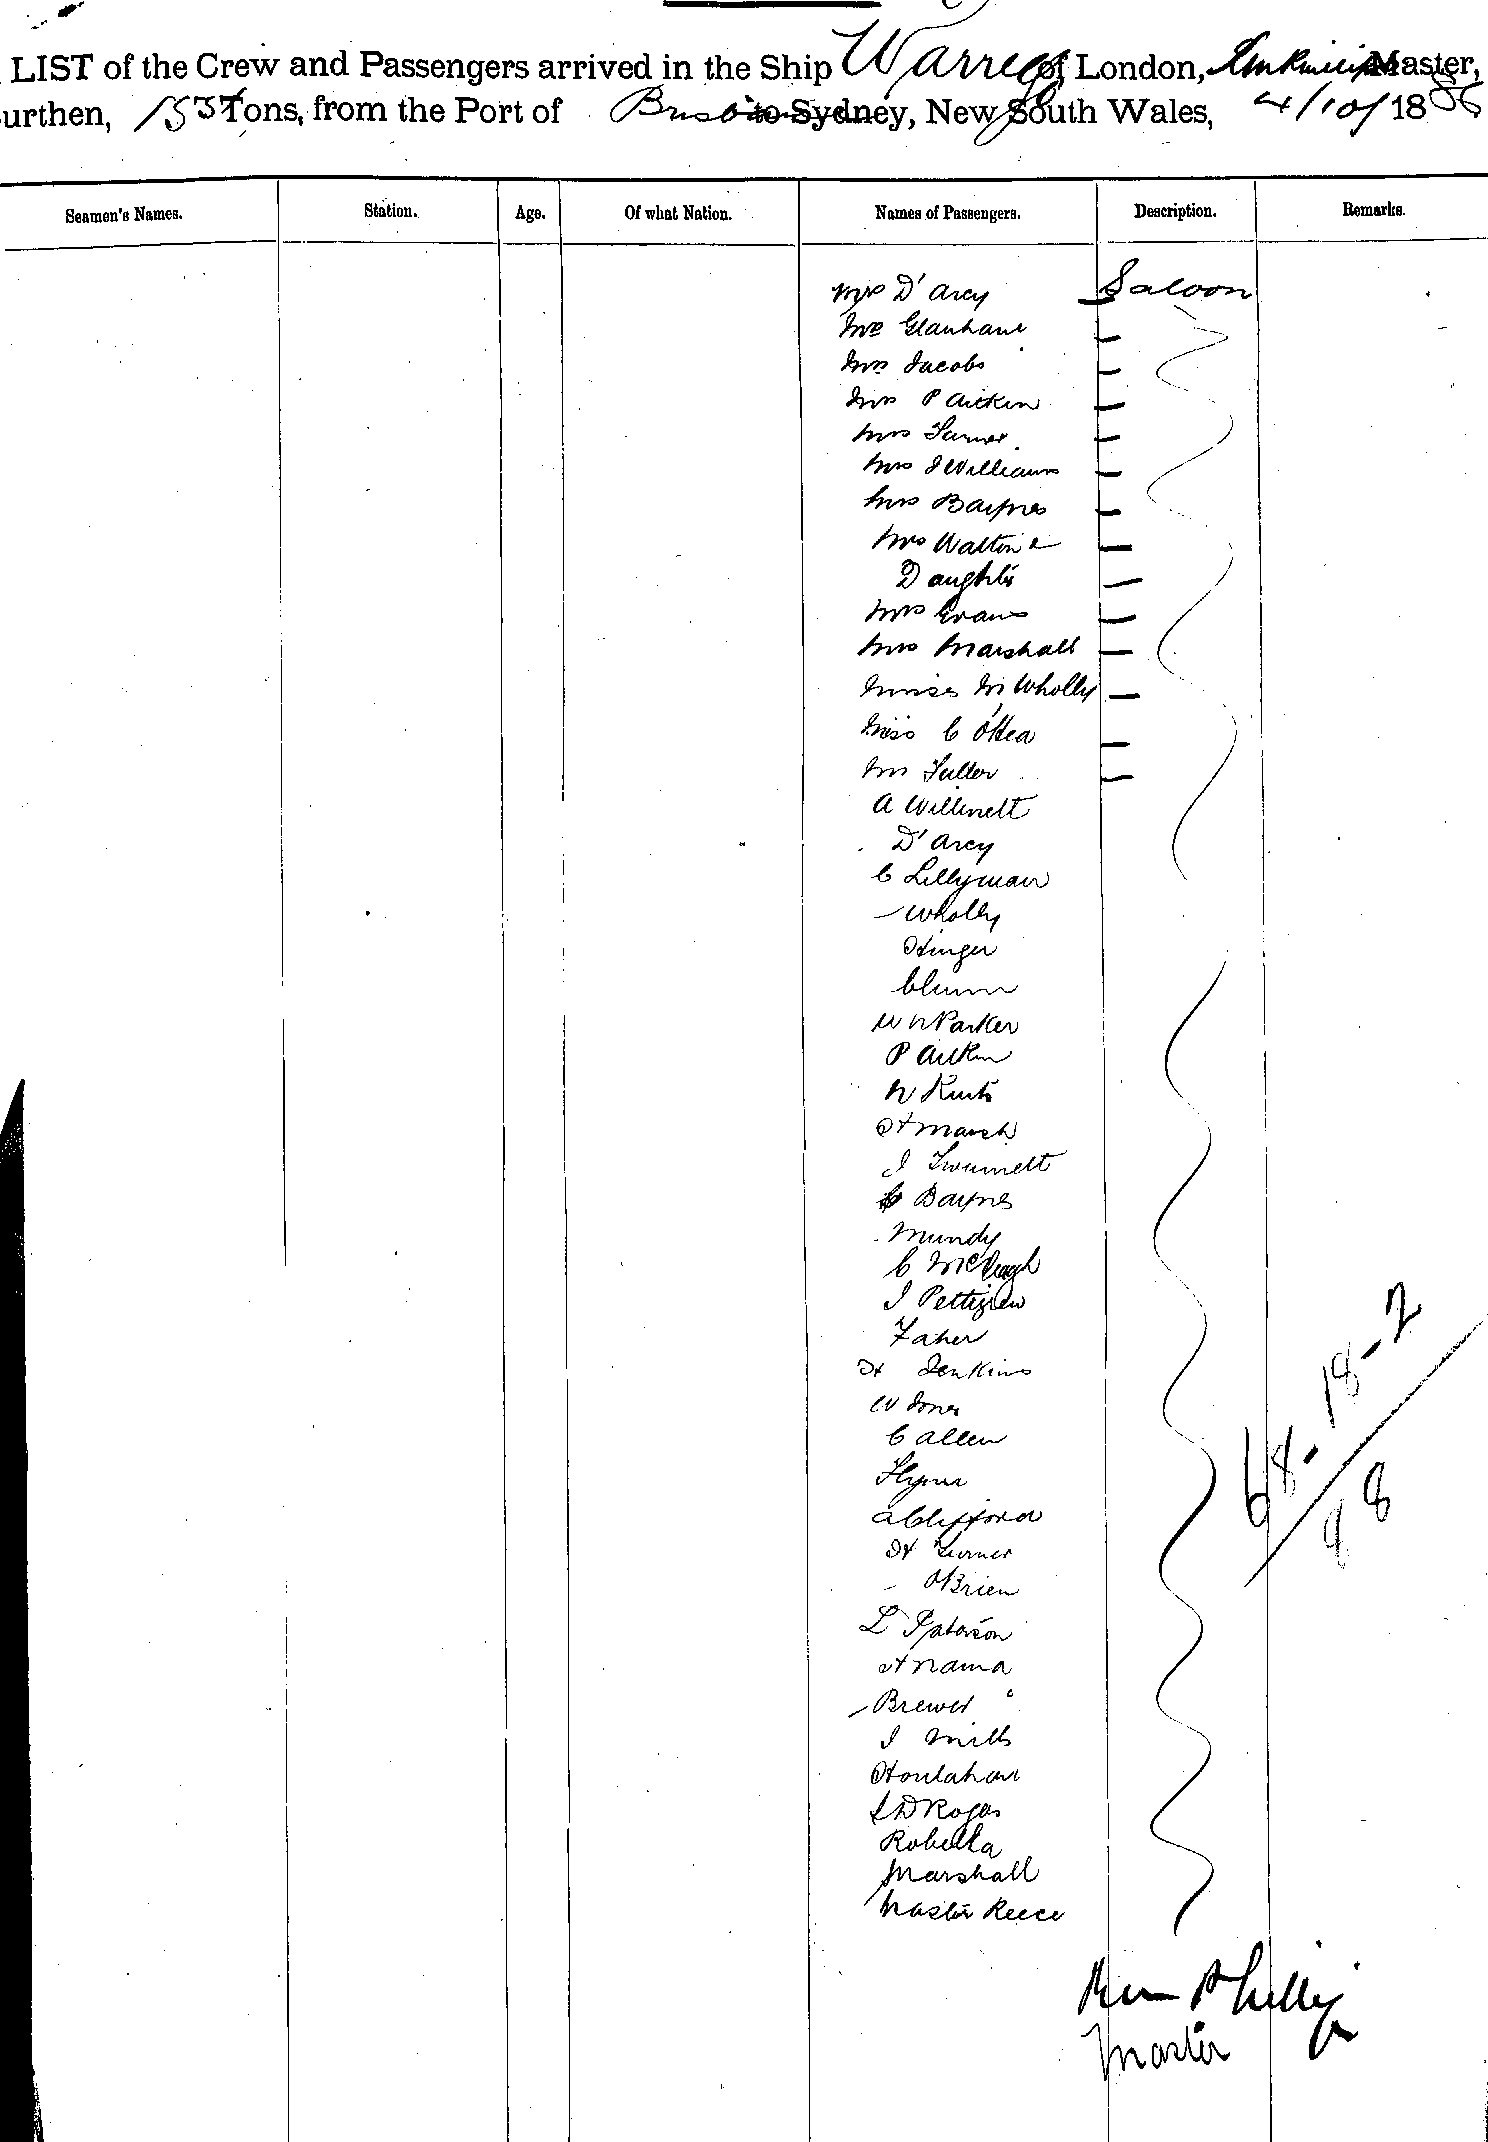 LIST of the Crew and Passengers arrived in the Ship Warrego of London, Master,
urthen, 153 Tons, from the Port of Brisb to Sydney, New South Wales, 4/10/1886
Seamen's Names. Station. Age. Of what Nation. Names of Passengers. Description. Remarks.
Mrs D'Arcy Saloon
Mrs
Mrs Jacobs
Mrs P Aitken
Mrs
Mrs J Williams
Mrs Baynes
Mrs Walton &
Daughter
Mrs Evans
Mrs Marshall
Misses Wholly
Miss C O'Hea
Mr Fuller
A Willmett
D'Arcy
C Lillyman
Wholly
Hinger
W N Parker
P Aitken
N
H Marsh
J
C Baynes
Mundy
C
J Pettigrew
H Jenkins
W Jones
C Allen
Flynn
A Clifford
H Turner
O'Brien
L
H
Brewer
J Mills
Houlahan
Roberta
Marshall
Master Reece
68-18-2
98
Master